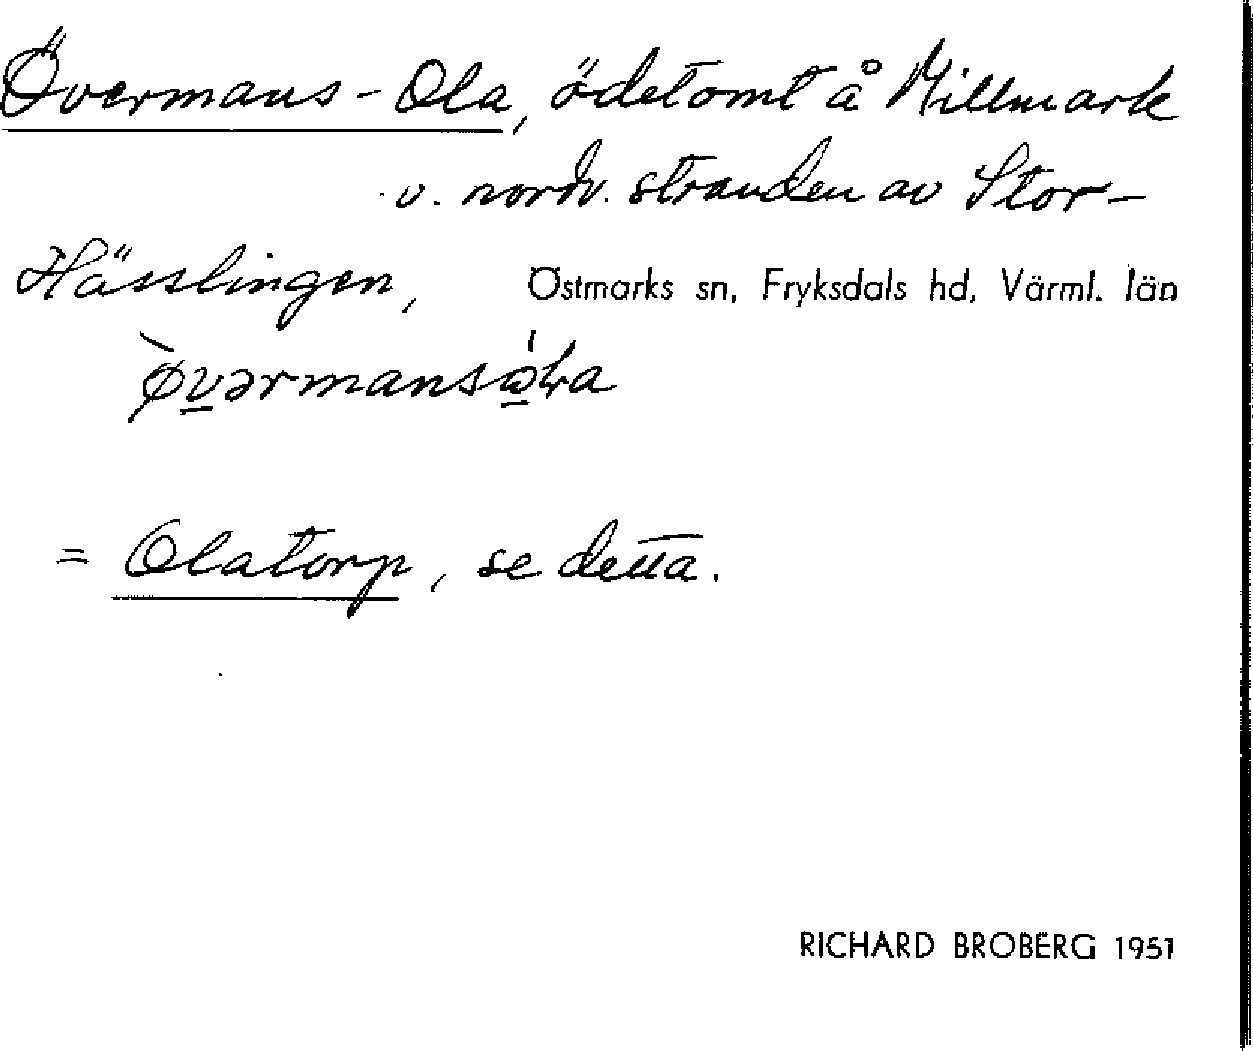 Övermans-Ola, ödetomt å Millmark
v. nordv. stranden av Stor-
Hässlingen, Östmarks sn, Fryksdals hd, Värml. län
= Olatorp, se detta.
RICHARD BROBERG 1951